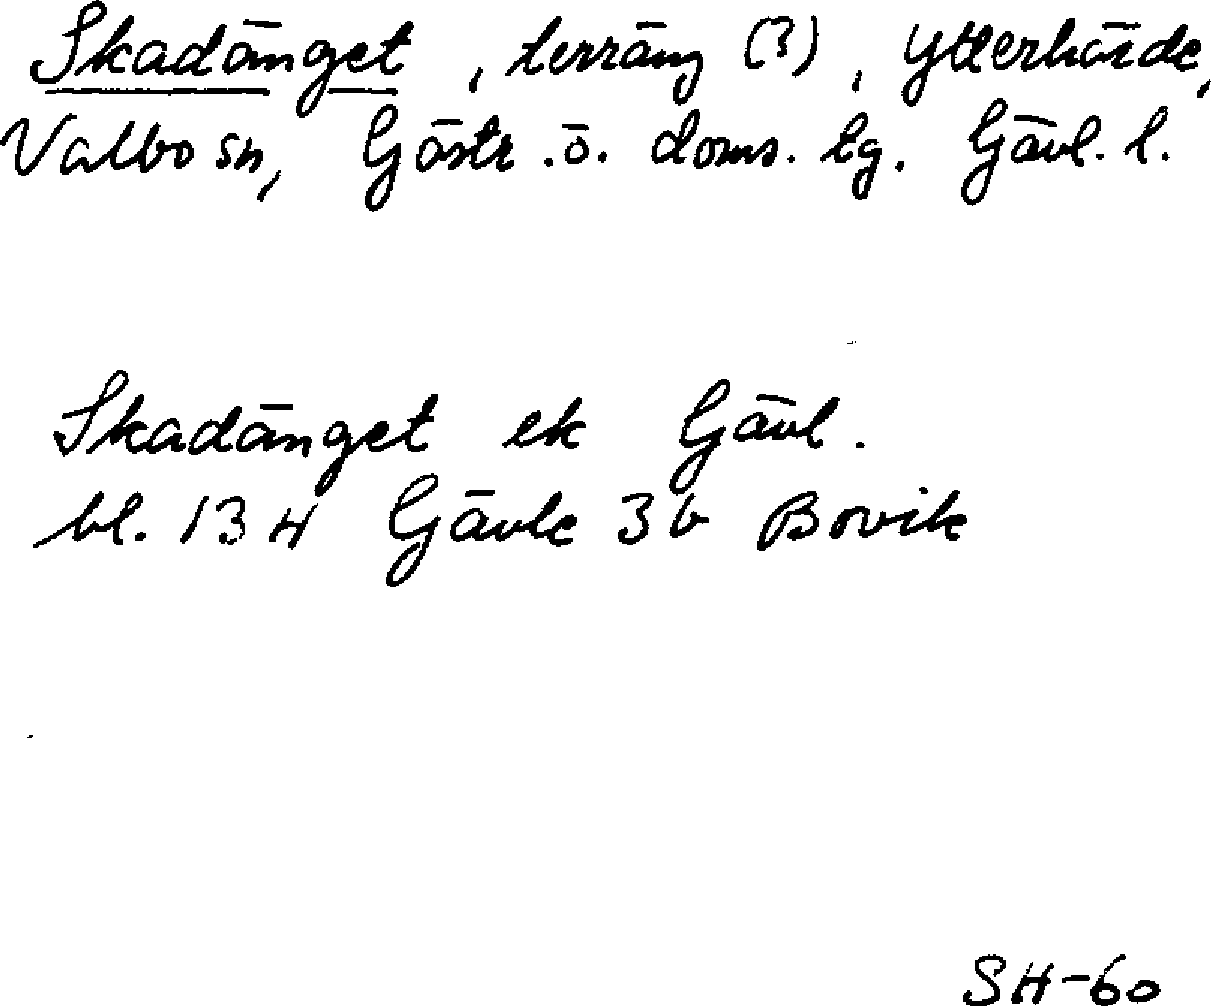 Skadänget, terräng (?), Ytterhärde,
Valbo sn, Gästr. ö. doms. lg. Gävl. l.
Skadänget ek Gävl.
bl. 13 H Gävle 3b Bovik
SH-60